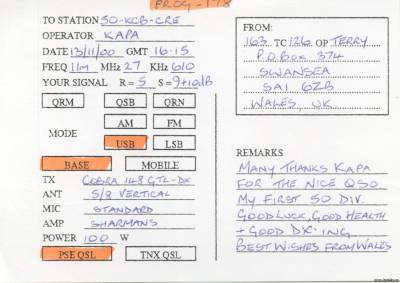 PROG-178
TO STATION 50-KCB-CRE
OPERATOR KAPA
DATE 13/11/00 GMT 16-15
FREQ 11M MHz 27 KHz 610
YOUR SIGNAL R= 5 S= 9+10db
QRM QSB QRN
AM FM
MODE
USB LSB
BASE MOBILE
TX COBRA 148 GTL-DX
ANT 5/8 VERTICAL
MIC STANDARD
AMP SHARMANS
POWER 100 W
PSE QSL TNX QSL
FROM:
163 TC 126 OP TERRY
P.O. BOX 374
SWANSEA
SA1 6ZB
WALES, UK
REMARKS
MANY THANKS KAPA
FOR THE NICE QSO
MY FIRST 50 DIV.
GOOD LUCK, GOOD HEALTH
+ GOOD DX-ING
BEST WISHES FROM WALES